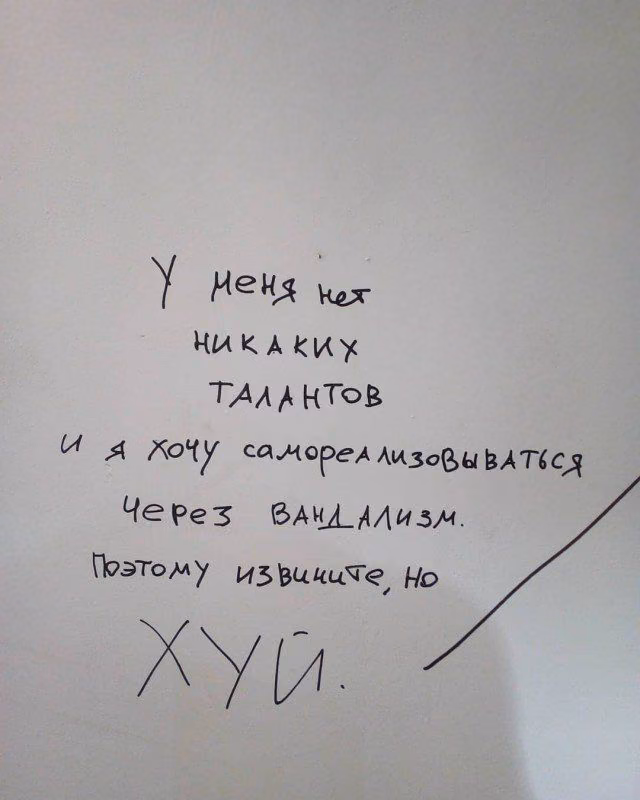 У меня нет
никаких
талантов
и я хочу самореализовываться
через вандализм.
Поэтому извините, но
ХУЙ.